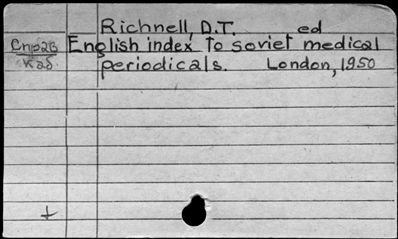 Richnell, D.T. ed
English index to soviet medical
periodicals. London, 1950